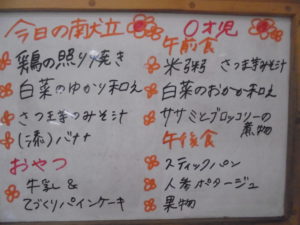 今日の献立
鶏の照り焼き
白菜のゆかり和え
さつま芋のみそ汁
(添)バナナ
おやつ
牛乳&
てづくりパインケーキ
0才児
午前食
米粥 さつま芋みそ汁
白菜のおかか和え
ササミとブロッコリーの
煮物
午後食
スティックパン
人参ポタージュ
果物